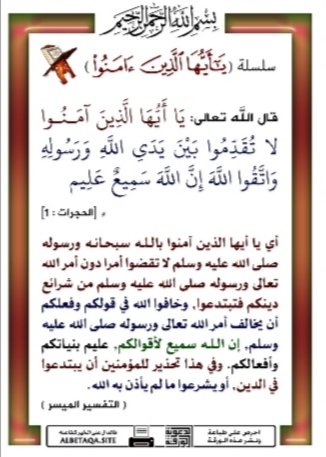 بسم الله الرحمن الرحيم
سلسلة (يَـٰٓأَيُّهَا ٱلَّذِينَ ءَامَنُوا۟)
قال الله تعالى: يَا أَيُّهَا الَّذِينَ آمَنُوا
لَا تُقَدِّمُوا بَيْنَ يَدَيِ اللَّهِ وَرَسُولِهِ
وَاتَّقُوا اللَّهَ إِنَّ اللَّهَ سَمِيعٌ عَلِيم
[الحجرات : 1]
أي يا أيها الذين آمنوا بالله سبحانه ورسوله
صلى الله عليه وسلم لا تقضوا أمرا دون أمر الله
تعالى ورسوله صلى الله عليه وسلم من شرائع
دينكم فتبتدعوا, وخافوا الله في قولكم وفعلكم
أن يخالف أمر الله تعالى ورسوله صلى الله عليه
وسلم, إن الله سميع لأقوالكم, عليم بنياتكم
وأفعالكم. وفي هذا تحذير للمؤمنين أن يبتدعوا
في الدين, أو يشرعوا ما لم يأذن به الله.
( التفسير الميسر )
احرص على طباعة
ونشر هذه الورقة
الدال على الخير كفاعله
ALBETAQA.SITE